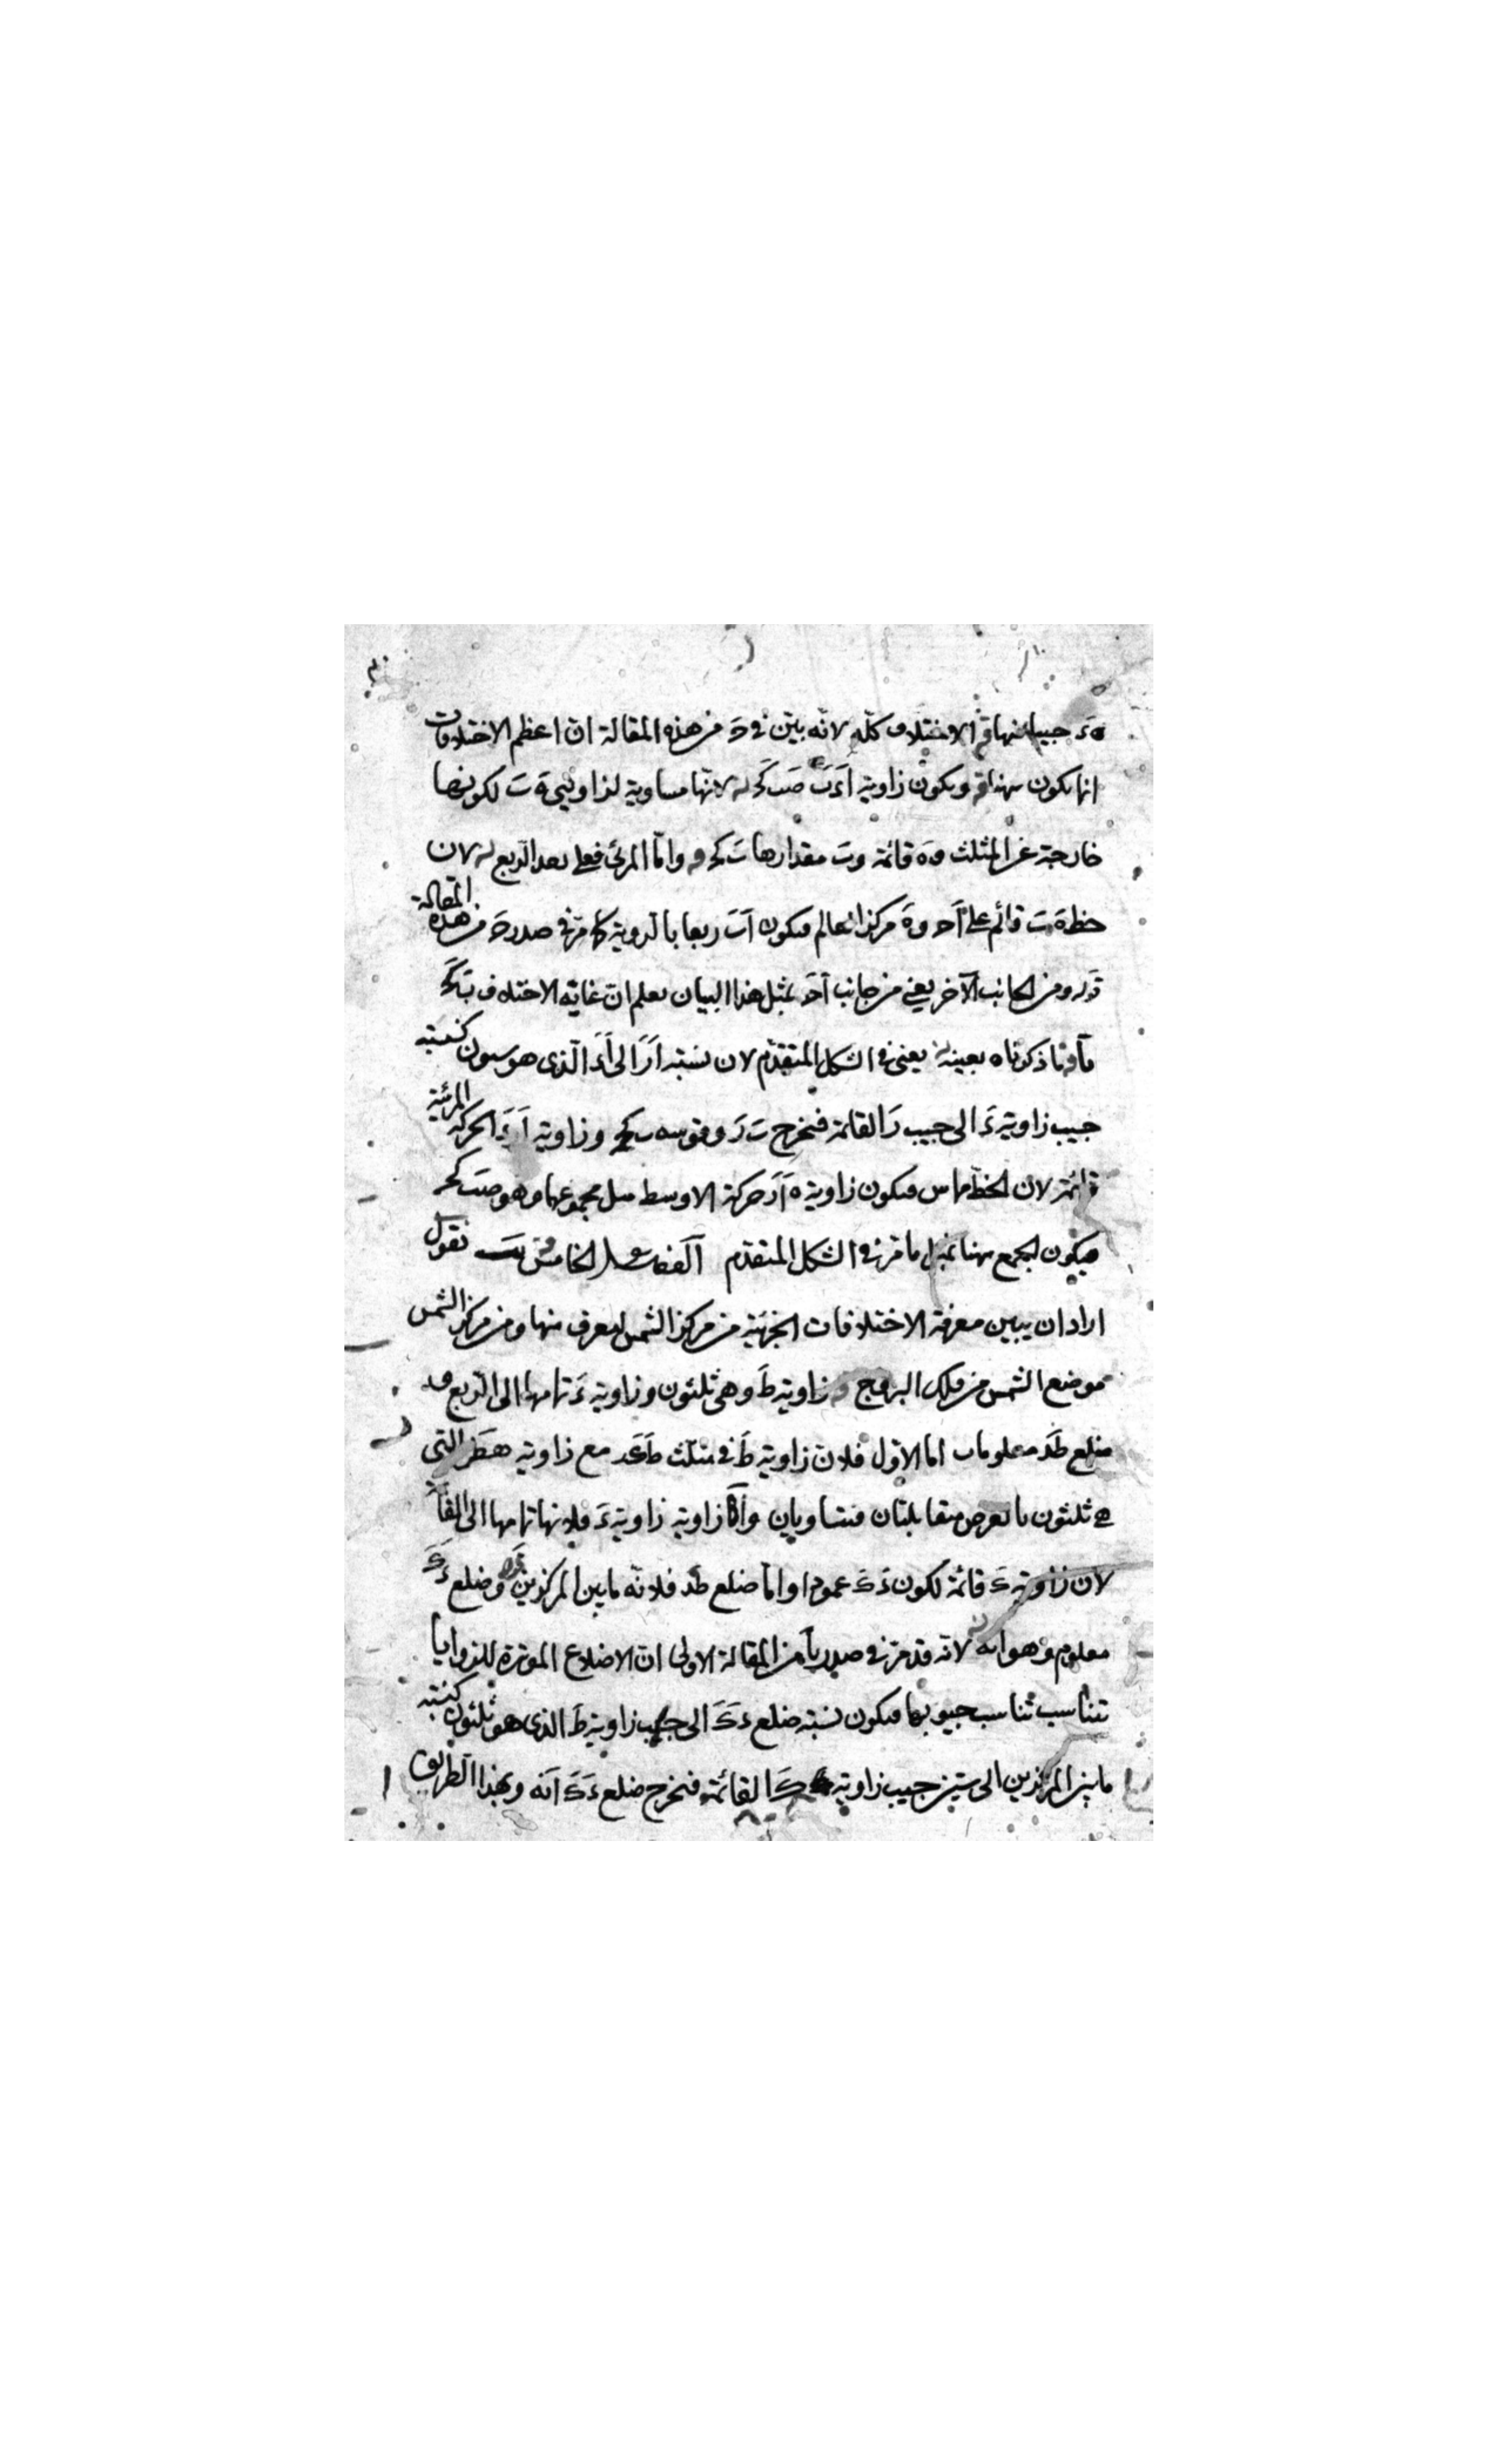 ءَ جيبا منها قه الاختلاف كله لانه بيّن فى دَ من هذه المقالة انّ اعظم الاختلافات
انما يكون ويكون زاوية اَءَبَ صَب كَح له لانّها مساوية لزاويتى هَ بَ لكونها
خارجة عن المثلث وهَ قائمة وبَ مقدارها بَ كح قه وامّا المرئى فعلى بعد الربع له لان
خط هَ بَ قائم على اَحَ وهَ مركز العالم فيكون اَبَ ربعا بالروية كما مرّ فى صدر دَ من هذه المقالة
قوله ومن الجانب الآخر يعنى من جانب اَحَ بمثل هذا البيان يعلم انّ غاية الاختلاف بَ كَح
قه ما ذكرناه بعينه له يعنى فى الشكل المتقدّم لان نسبة اَرَ الى اَءَ الّذى هو ستون كنسبة
جيب زاوية ءَ الى جيب رَ القائمة فنخرج بَ رَ وقوسه ب كح وزاوية اَرَءَ الحركة المرئية
قائمة لان الخط مماس فيكون زاوية هَ اَءَ حركة الاوسط مثل مجموعهما وهو صَب كَح
فيكون الجميع ههنا بمثل ما مرّ فى الشكل المتقدّم الفصل الخامس نقول
اراد ان يبين معرفة الاختلافات الجزئية من مركز الشمس ليعرف منها ومن مركز الشمس
موضع الشمس من فلك البروج قه زاوية طَ وهى ثلثون وزاوية ءَ تمامها الى الربع وله
ضلع طَد معلومات اما الاوّل فلانّ زاوية طَ فى مثلّث طَكَد مع زاوية هـطَر التى
هى ثلثون بالعرض متقابلتان فمتساويان وامّا زاوية زاوية ءَ فلانها تمامها الى القائمة
لان زاوية كَ قائمة لكون ءَ كَ عمودا وامّا ضلع طَد فلانّه ما بين المركزين قوله وضلع ءَكَ
معلوم وهو انه له لانّه قد مرّ فى صدر يا من المقالة الاولى انّ الاضلاع الموترة للزوايا
تتناسب تناسب جيوبها فيكون نسبة ضلع ءَ كَ الى جيب زاوية طَ الذى هو ثلثون كنسبة
ما بين المركزين الى ستين جيب زاوية كَ القائمة فنخرج ضلع ءَ كَ انه وبهذا الطريق